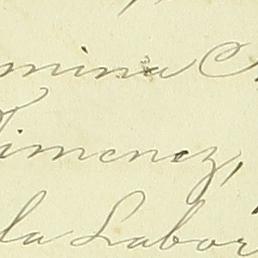 mina C
Jimenez,
la Labor